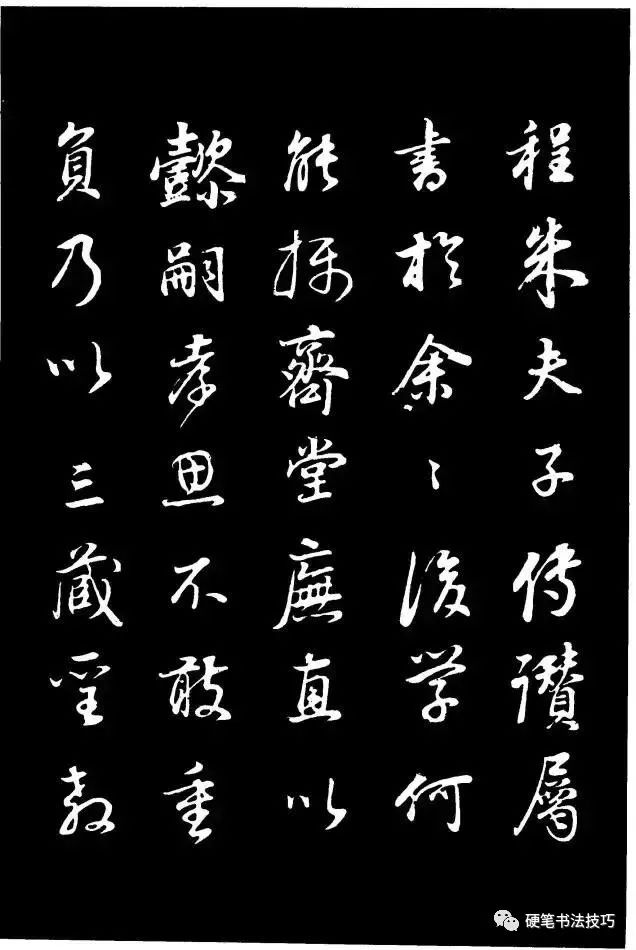 程朱夫子傳讚屬
書於余〻後学何
能齊堂廡直以
懿嗣孝思不敢重
負乃以三藏聖教
硬笔书法技巧